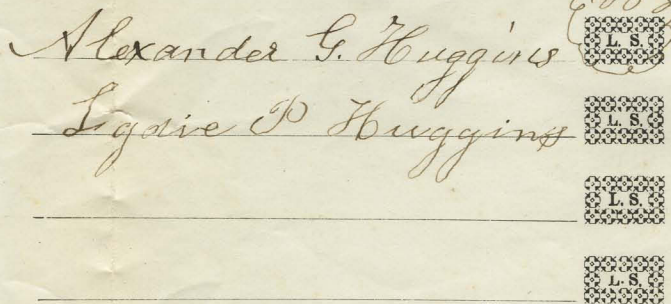 Alexander G. Huggins L. S.
Lydie P Huggins L. S.
L. S.
L. S.